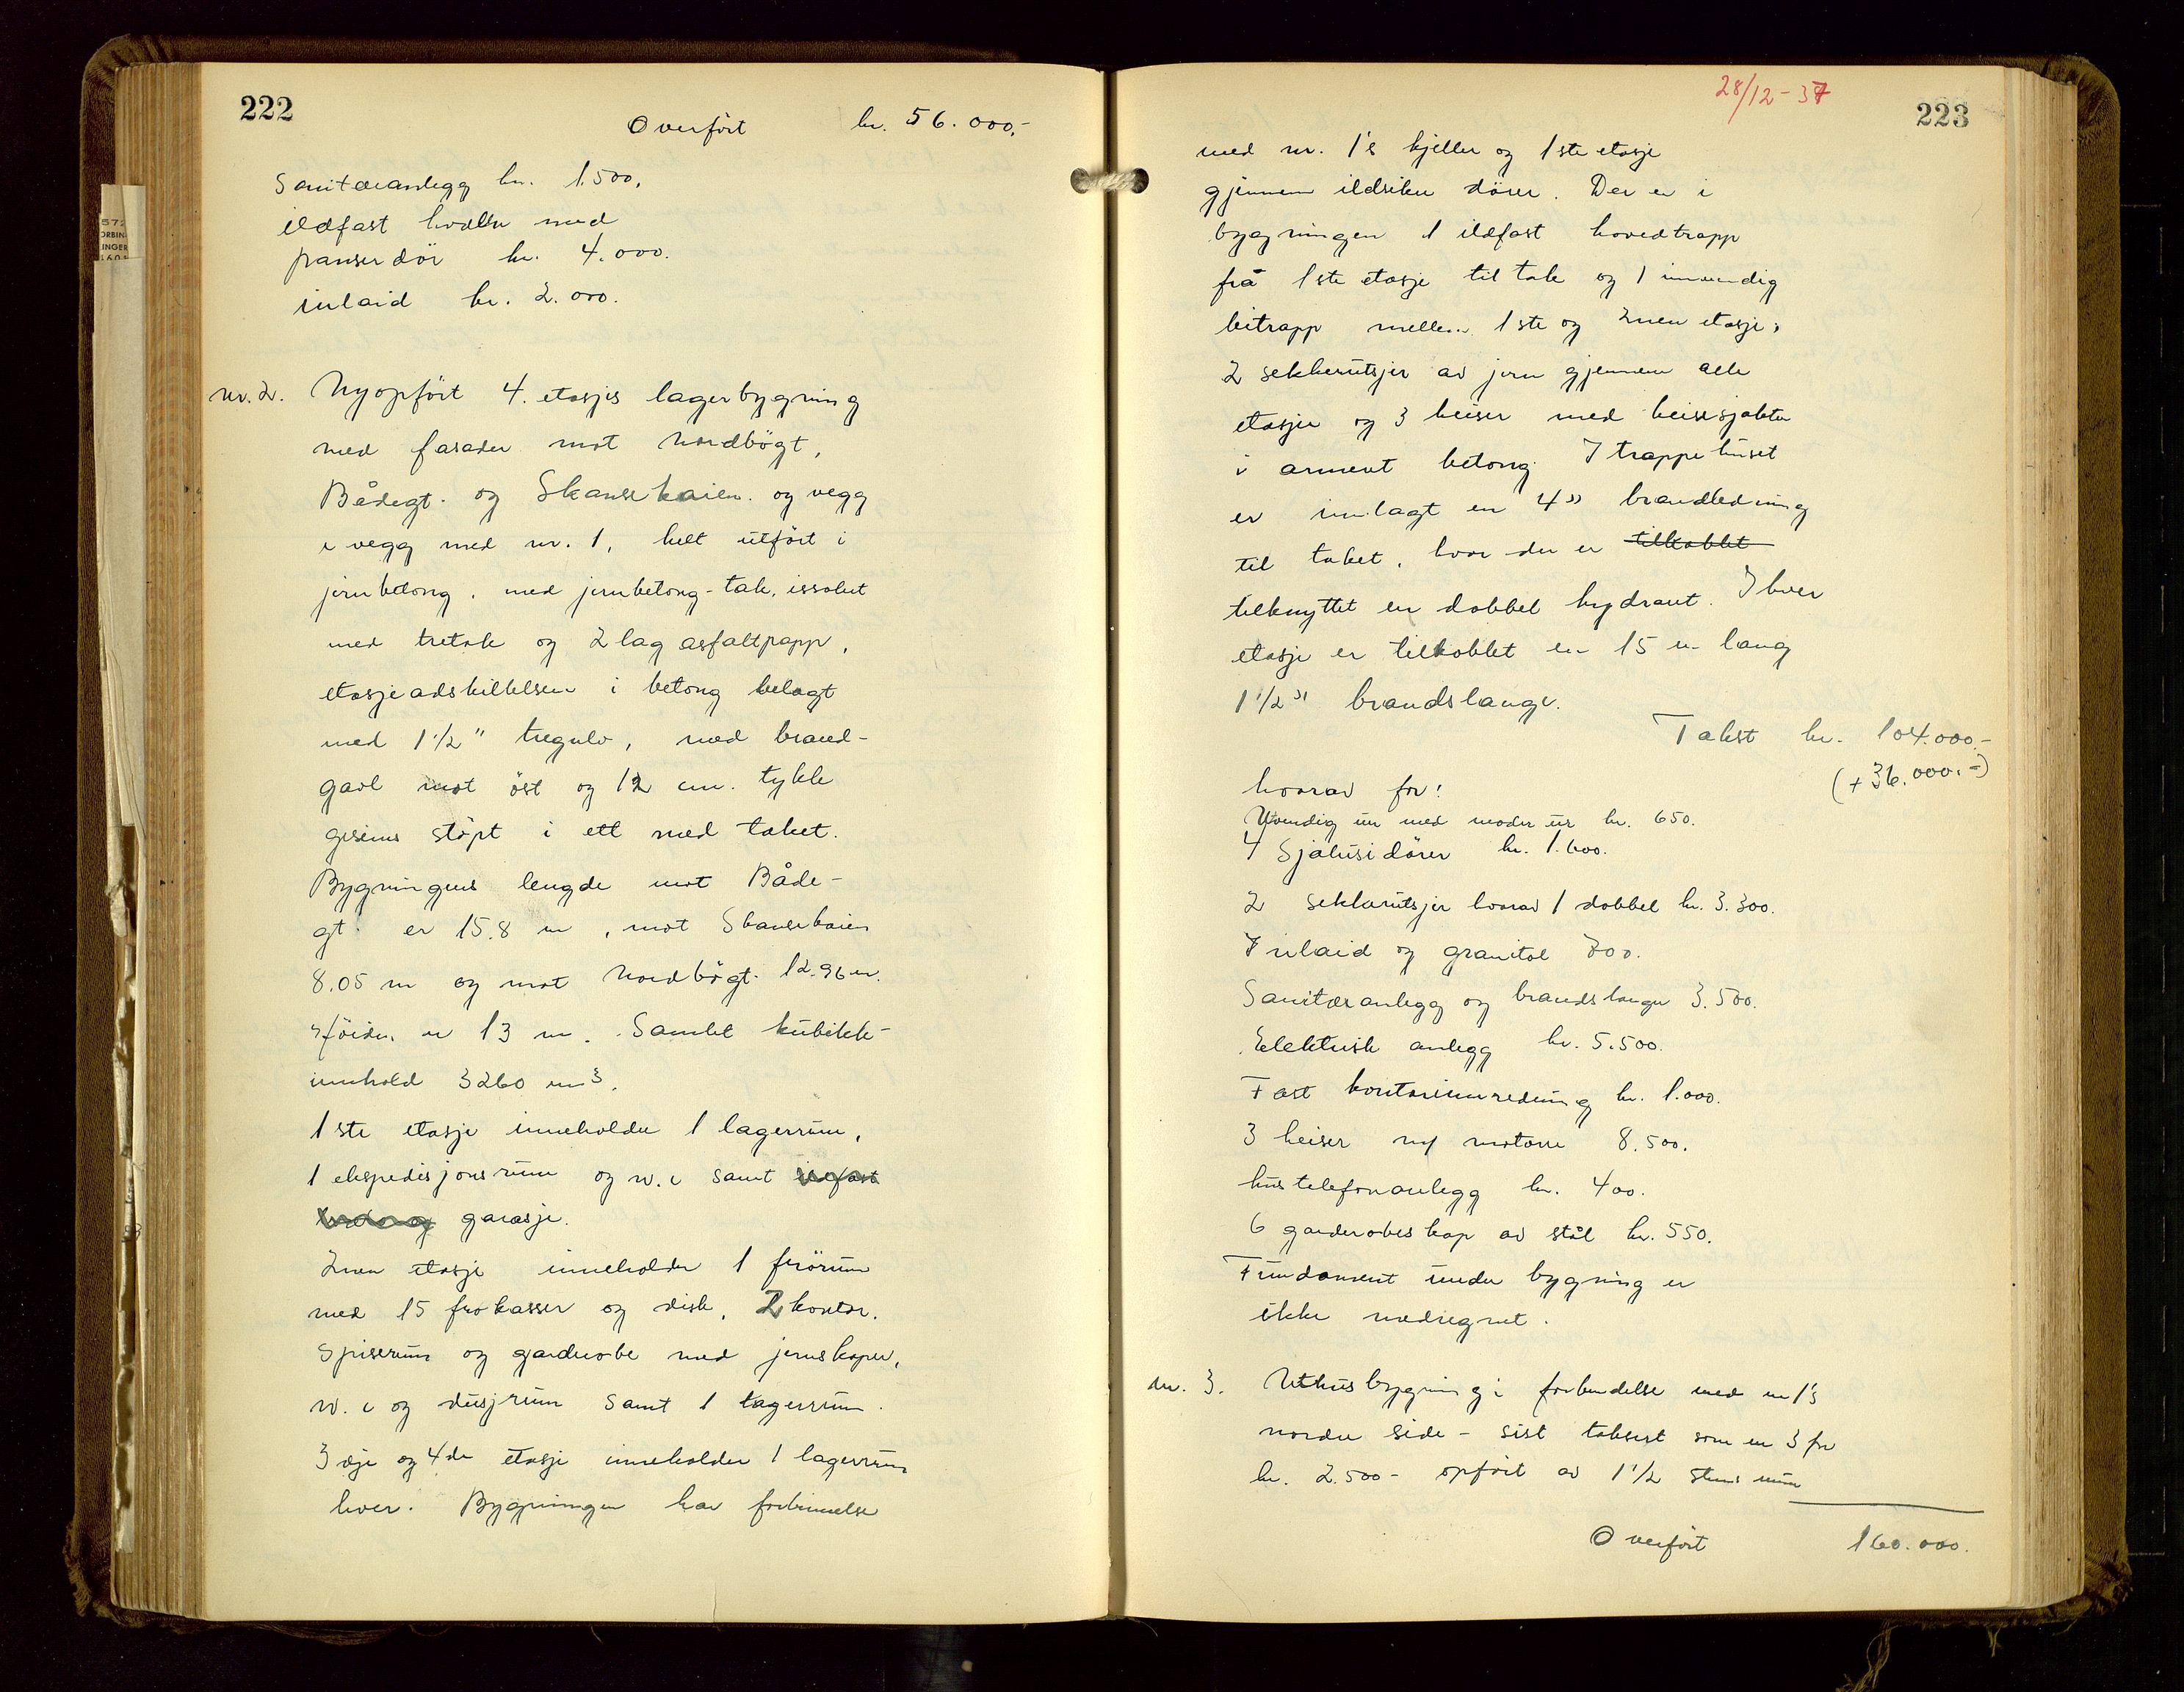 222
Overført kr. 56.000,-
Sanitæranlegg kr. 1.500,
ildfast hvelv med
panserdör kr. 4.000.
inlaid kr. 2.000.
nr. 2. Nyopfört 4. etasjes lagerbygning
med fasader mot Nordbögt,
Bådegt. og Skansekaien. og vegg
i vegg med nr. 1, helt utfört i
jernbetong, med jernbetong-tak, issolert
med tretak og 2 lag asfaltpapp,
etasjeadskillelsen i betong belagt
med 1 1/2" tregulv, med brand-
gavl mot öst og 12 cm. tykk
gesims stöpt i ett med taket.
Bygningens lengde mot Både-
gt. er 15.8 m, mot Skansekaien
8.05 m og mot Nordbögt. 12.96 m.
Höiden er 13 m. Samlet kubikk-
innhold 3260 m3.
1ste etasje inneholder 1 lagerrum,
1 ekspedisjonsrum og w.c samt ildfast
garasje.
2nen etasje inneholder 1 frörum
med 15 frokasser og disk, 2 kontor.
Spiserum og garderobe med jernskaper,
w.c og dusjrum samt 1 lagerrum.
3dje og 4de etasje inneholder 1 lagerrum
hver. Bygningen har forbinnelse
28/12-37
223
med nr. 1's kjeller og 1ste etasje
gjennem ildsikre dörer. Der er i
bygningen 1 ildfast hovedtrapp
frå 1ste etasje til tak og 1 innvendig
bitrapp mellem 1ste og 2nen etasje,
2 sekkerutsjer av jern gjennem alle
etasjer og 3 heiser med heissjakter
i armert betong. I trappehuset
er innlagt en 4" brandledning
til taket, hvor der er tilkoblet
tilknyttet en dobbel hydrant. I hver
etasje er tilkoblet en 15 m lang
1 1/2" brandslange.
Takst kr. 104.000.-
(+36.000.-)
hvorav for:
Utvendig ur med moder ur kr. 650.
4 Sjalusidörer kr. 1.600.
2 sekkerutsjer hvorav 1 dobbel kr. 3.300.
Inlaid og granitol 700.
Sanitæranlegg og brandslanger 3.500.
Elektrisk anlegg kr. 5.500.
Fast kontorinnredning kr. 1.000.
3 heiser m/ motorer 8.500.
hustelefonanlegg kr. 400.
6 garderobeskap av stål kr. 550.
Fundament under bygning er
ikke medregnet.
nr. 3. Uthusbygning i forbindelse med nr 1's
nordre side - sist taksert som nr 3 for
kr. 2.500- opfört av 1 1/2 stens mur
Overfört 160.000.